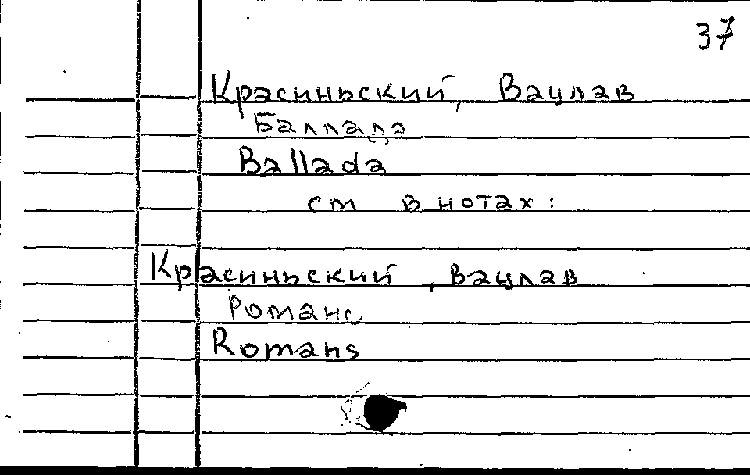 37
Красиньский, Вацлав
Баллада
Ballada
см в нотах:
Красиньский, Вацлав
Романс
Romans